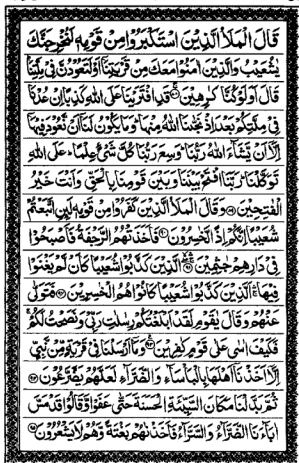 قَالَ الْمَلَاُ الَّذِیْنَ اسْتَكْبَرُوْا مِنْ قَوْمِهٖ لَنُخْرِجَنَّكَ
یٰشُعَیْبُ وَالَّذِیْنَ اٰمَنُوْا مَعَكَ مِنْ قَرْیَتِنَاۤ اَوْ لَتَعُوْدُنَّ فِیْ مِلَّتِنَا
قَالَ اَوَلَوْ كُنَّا كٰرِهِیْنَ ۟ۚ قَدِ افْتَرَیْنَا عَلَی اللّٰهِ كَذِبًا اِنْ عُدْنَا
فِیْ مِلَّتِكُمْ بَعْدَ اِذْ نَجّٰىنَا اللّٰهُ مِنْهَا ؕ وَمَا یَكُوْنُ لَنَاۤ اَنْ نَّعُوْدَ فِیْهَاۤ
اِلَّاۤ اَنْ یَّشَآءَ اللّٰهُ رَبُّنَا ؕ وَسِعَ رَبُّنَا كُلَّ شَیْءٍ عِلْمًا ؕ عَلَی اللّٰهِ
تَوَكَّلْنَا ؕ رَبَّنَا افْتَحْ بَیْنَنَا وَبَیْنَ قَوْمِنَا بِالْحَقِّ وَاَنْتَ خَیْرُ
الْفٰتِحِیْنَ ۟۸۹ وَقَالَ الْمَلَاُ الَّذِیْنَ كَفَرُوْا مِنْ قَوْمِهٖ لَىِٕنِ اتَّبَعْتُمْ
شُعَیْبًا اِنَّكُمْ اِذًا لَّخٰسِرُوْنَ ۟۹۰ فَاَخَذَتْهُمُ الرَّجْفَةُ فَاَصْبَحُوْا
فِیْ دَارِهِمْ جٰثِمِیْنَ ۟ۚۖ۹۱ الَّذِیْنَ كَذَّبُوْا شُعَیْبًا كَاَنْ لَّمْ یَغْنَوْا
فِیْهَا ۛۚ اَلَّذِیْنَ كَذَّبُوْا شُعَیْبًا كَانُوْا هُمُ الْخٰسِرِیْنَ ۟۹۲ فَتَوَلّٰی
عَنْهُمْ وَقَالَ یٰقَوْمِ لَقَدْ اَبْلَغْتُكُمْ رِسٰلٰتِ رَبِّیْ وَنَصَحْتُ لَكُمْ ۚ
فَكَیْفَ اٰسٰی عَلٰی قَوْمٍ كٰفِرِیْنَ ۟۹۳ وَمَاۤ اَرْسَلْنَا فِیْ قَرْیَةٍ مِّنْ نَّبِیٍّ
اِلَّاۤ اَخَذْنَاۤ اَهْلَهَا بِالْبَاْسَآءِ وَالضَّرَّآءِ لَعَلَّهُمْ یَضَّرَّعُوْنَ ۟۹۴
ثُمَّ بَدَّلْنَا مَكَانَ السَّیِّئَةِ الْحَسَنَةَ حَتّٰی عَفَوْا وَّقَالُوْا قَدْ مَسَّ
اٰبَآءَنَا الضَّرَّآءُ وَالسَّرَّآءُ فَاَخَذْنٰهُمْ بَغْتَةً وَّهُمْ لَا یَشْعُرُوْنَ ۟۹۵